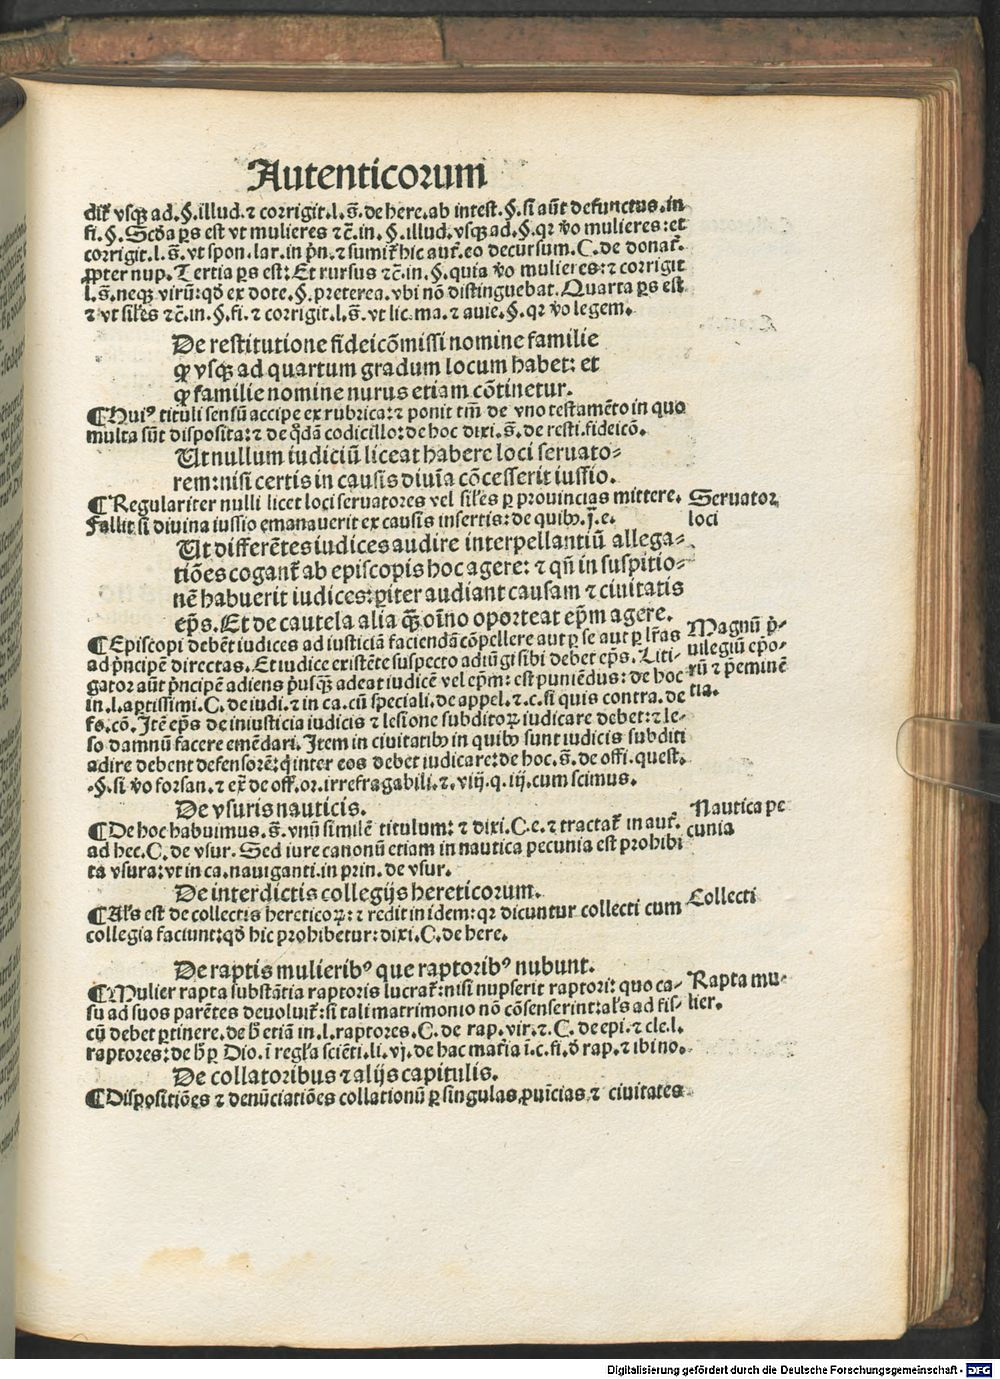 Autenticorum
dit̃ vsq; ad .§. illud. ⁊ corrigit .l. s̃. de here. ab intest. §. si aūt defunctus. in
fi. §. Scd̃a ps est vt mulieres ⁊c̃. in .§. illud. vsq; ad .§. qr ṽo mulieres: et
corrigit .l. s̃. vt spon. lar. in p̃n. ⁊ sumit̃ hic aut̃. eo decursum. C. de donat̃.
ꝓpter nup. Tertia ps est: Et rursus ⁊c̃. in .§. quia ṽo mulieres: ⁊ corrigit
l. s̃. neq; virū: qd̃ ex dote. §. preterea. vbi nō distinguebat. Quarta ps est
⁊ vt siles ⁊c̃. in .§. fi. ⁊ corrigit .l. s̃. vt lic. ma. ⁊ auie. §. qr ṽo legem.
De restitutione fideicōmissi nomine familie
ꝙ vsq; ad quartum gradum locum habet: et
ꝙ familie nomine nurus etiam cōtinetur.
¶ Huiꝰ tituli sensū accipe ex rubrica: ⁊ ponit tm̃ de vno testamēto in quo
multa sūt disposita: ⁊ de qdā codicillo: de hoc dixi. s̃. de resti. fideicō.
Ut nullum iudiciū liceat habere loci seruato-
rem: nisi certis in causis diuia cōcesserit iussio.
¶ Regulariter nulli licet loci seruatores vel siles ꝑ prouincias mittere.
Fallit si diuina iussio emanauerit ex causis insertis: de quibꝰ. j̃. e.
Seruator
loci
Ut differētes iudices audire interpellantiū allega-
tiōes cogant̃ ab episcopis hoc agere: ⁊ qn̄ in suspitio-
nē habuerit iudices: ꝑiter audiant causam ⁊ ciuitatis
ep̃s. Et de cautela alia q̃ oīno oporteat ep̃m agere.
¶ Episcopi debēt iudices ad iusticiā faciendā cōpellere aut ꝑ se aut ꝑ lr̃as
ad p̃ncipē directas. Et iudice existēte suspecto adiūgi sibi debet ep̃s. Liti-
gator aūt p̃ncipē adiens p̃usq̃ adeat iudicē vel ep̃m: est puniēdus: de hoc
in .l. aptissimi. C. de iudi. ⁊ in ca. cū speciali. de appel. ⁊ .c. si quis contra. de
fo. cō. Itē ep̃s de iniusticia iudicis ⁊ lesione subditoꝝ iudicare debet: ⁊ le-
so damnū facere emēdari. Item in ciuitatibꝰ in quibꝰ sunt iudicis subditi
adire debent defensorē: q̇ inter eos debet iudicare: de hoc. s̃. de offi. quest.
§. si ṽo forsan. ⁊ ex̃ de off. or. irrefragabili. ⁊. viij. q. iij. cum scimus.
Magnū p̃-
uilegiū ep̃o-
rū ⁊ p̃eminē
tia.
De vsuris nauticis.
¶ De hoc habuimus. s̃. vnū similē titulum: ⁊ dixi. C. e. ⁊ tractat̃ in aut̃.
ad hec. C. de vsur. Sed iure canonū etiam in nautica pecunia est prohibi
ta vsura: vt in ca. nauiganti. in prin. de vsur.
Nautica pe
cunia
De interdictis collegijs hereticorum.
¶ Als est de collectis hereticoꝝ: ⁊ redit in idem: qr dicuntur collecti cum
collegia faciunt: qd̃ hic prohibetur: dixi. C. de here.
Collecti
De raptis mulieribꝰ que raptoribꝰ nubunt.
¶ Mulier rapta substātia raptoris lucrat̃: nisi nupserit raptori: quo ca-
su ad suos parētes deuoluit̃: si tali matrimonio nō cōsenserint: als ad fis-
cū debet ꝑtinere. de h̃ etiā in .l. raptores. C. de rap. vir. ⁊. C. de epi. ⁊ cle. l.
raptores: de h̃ ꝑ Dio. ī regl̃a sciēti. li. vj. de hac mat̃ia ī .c. fi. d̃ rap. ⁊ ibi no.
Rapta mu-
lier.
De collatoribus ⁊ alijs capitulis.
¶ Dispositiōes ⁊ denūciatiōes collationū ꝑ singulas ꝓuīcias ⁊ ciuitates
Digitalisierung gefördert durch die Deutsche Forschungsgemeinschaft - DFG